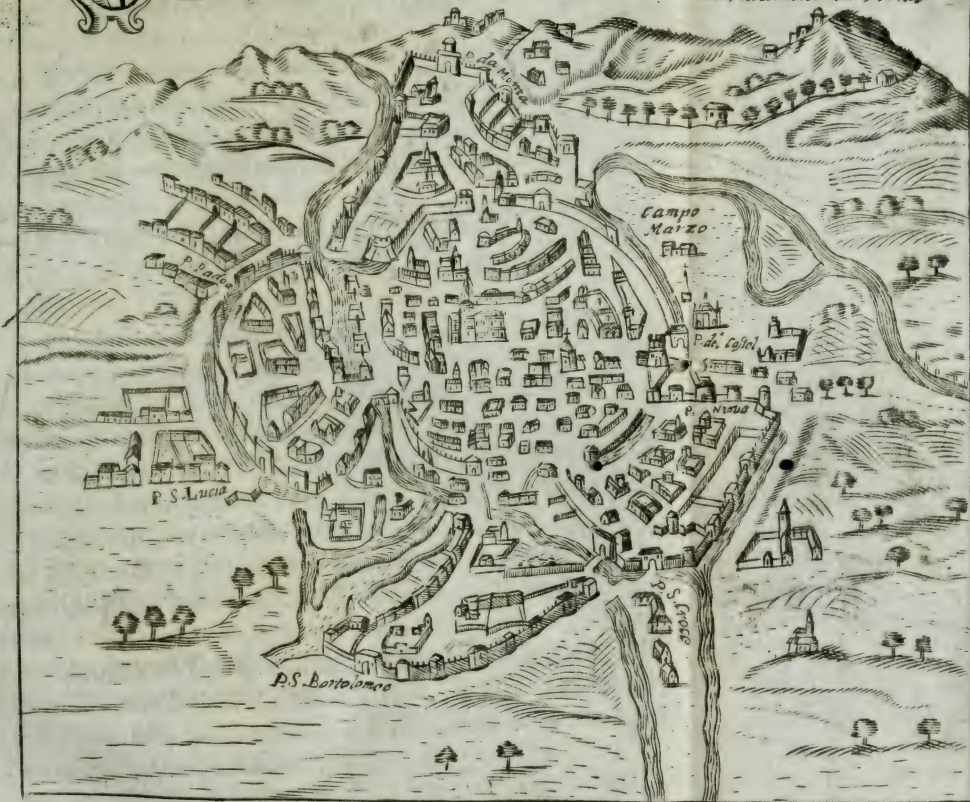 P. da Monte
Campo
Marzo
P. Padoa
P. dei Castel
P. Nuova
P. S. Lucia
P. S. Croce
P. S. Bortolomeo